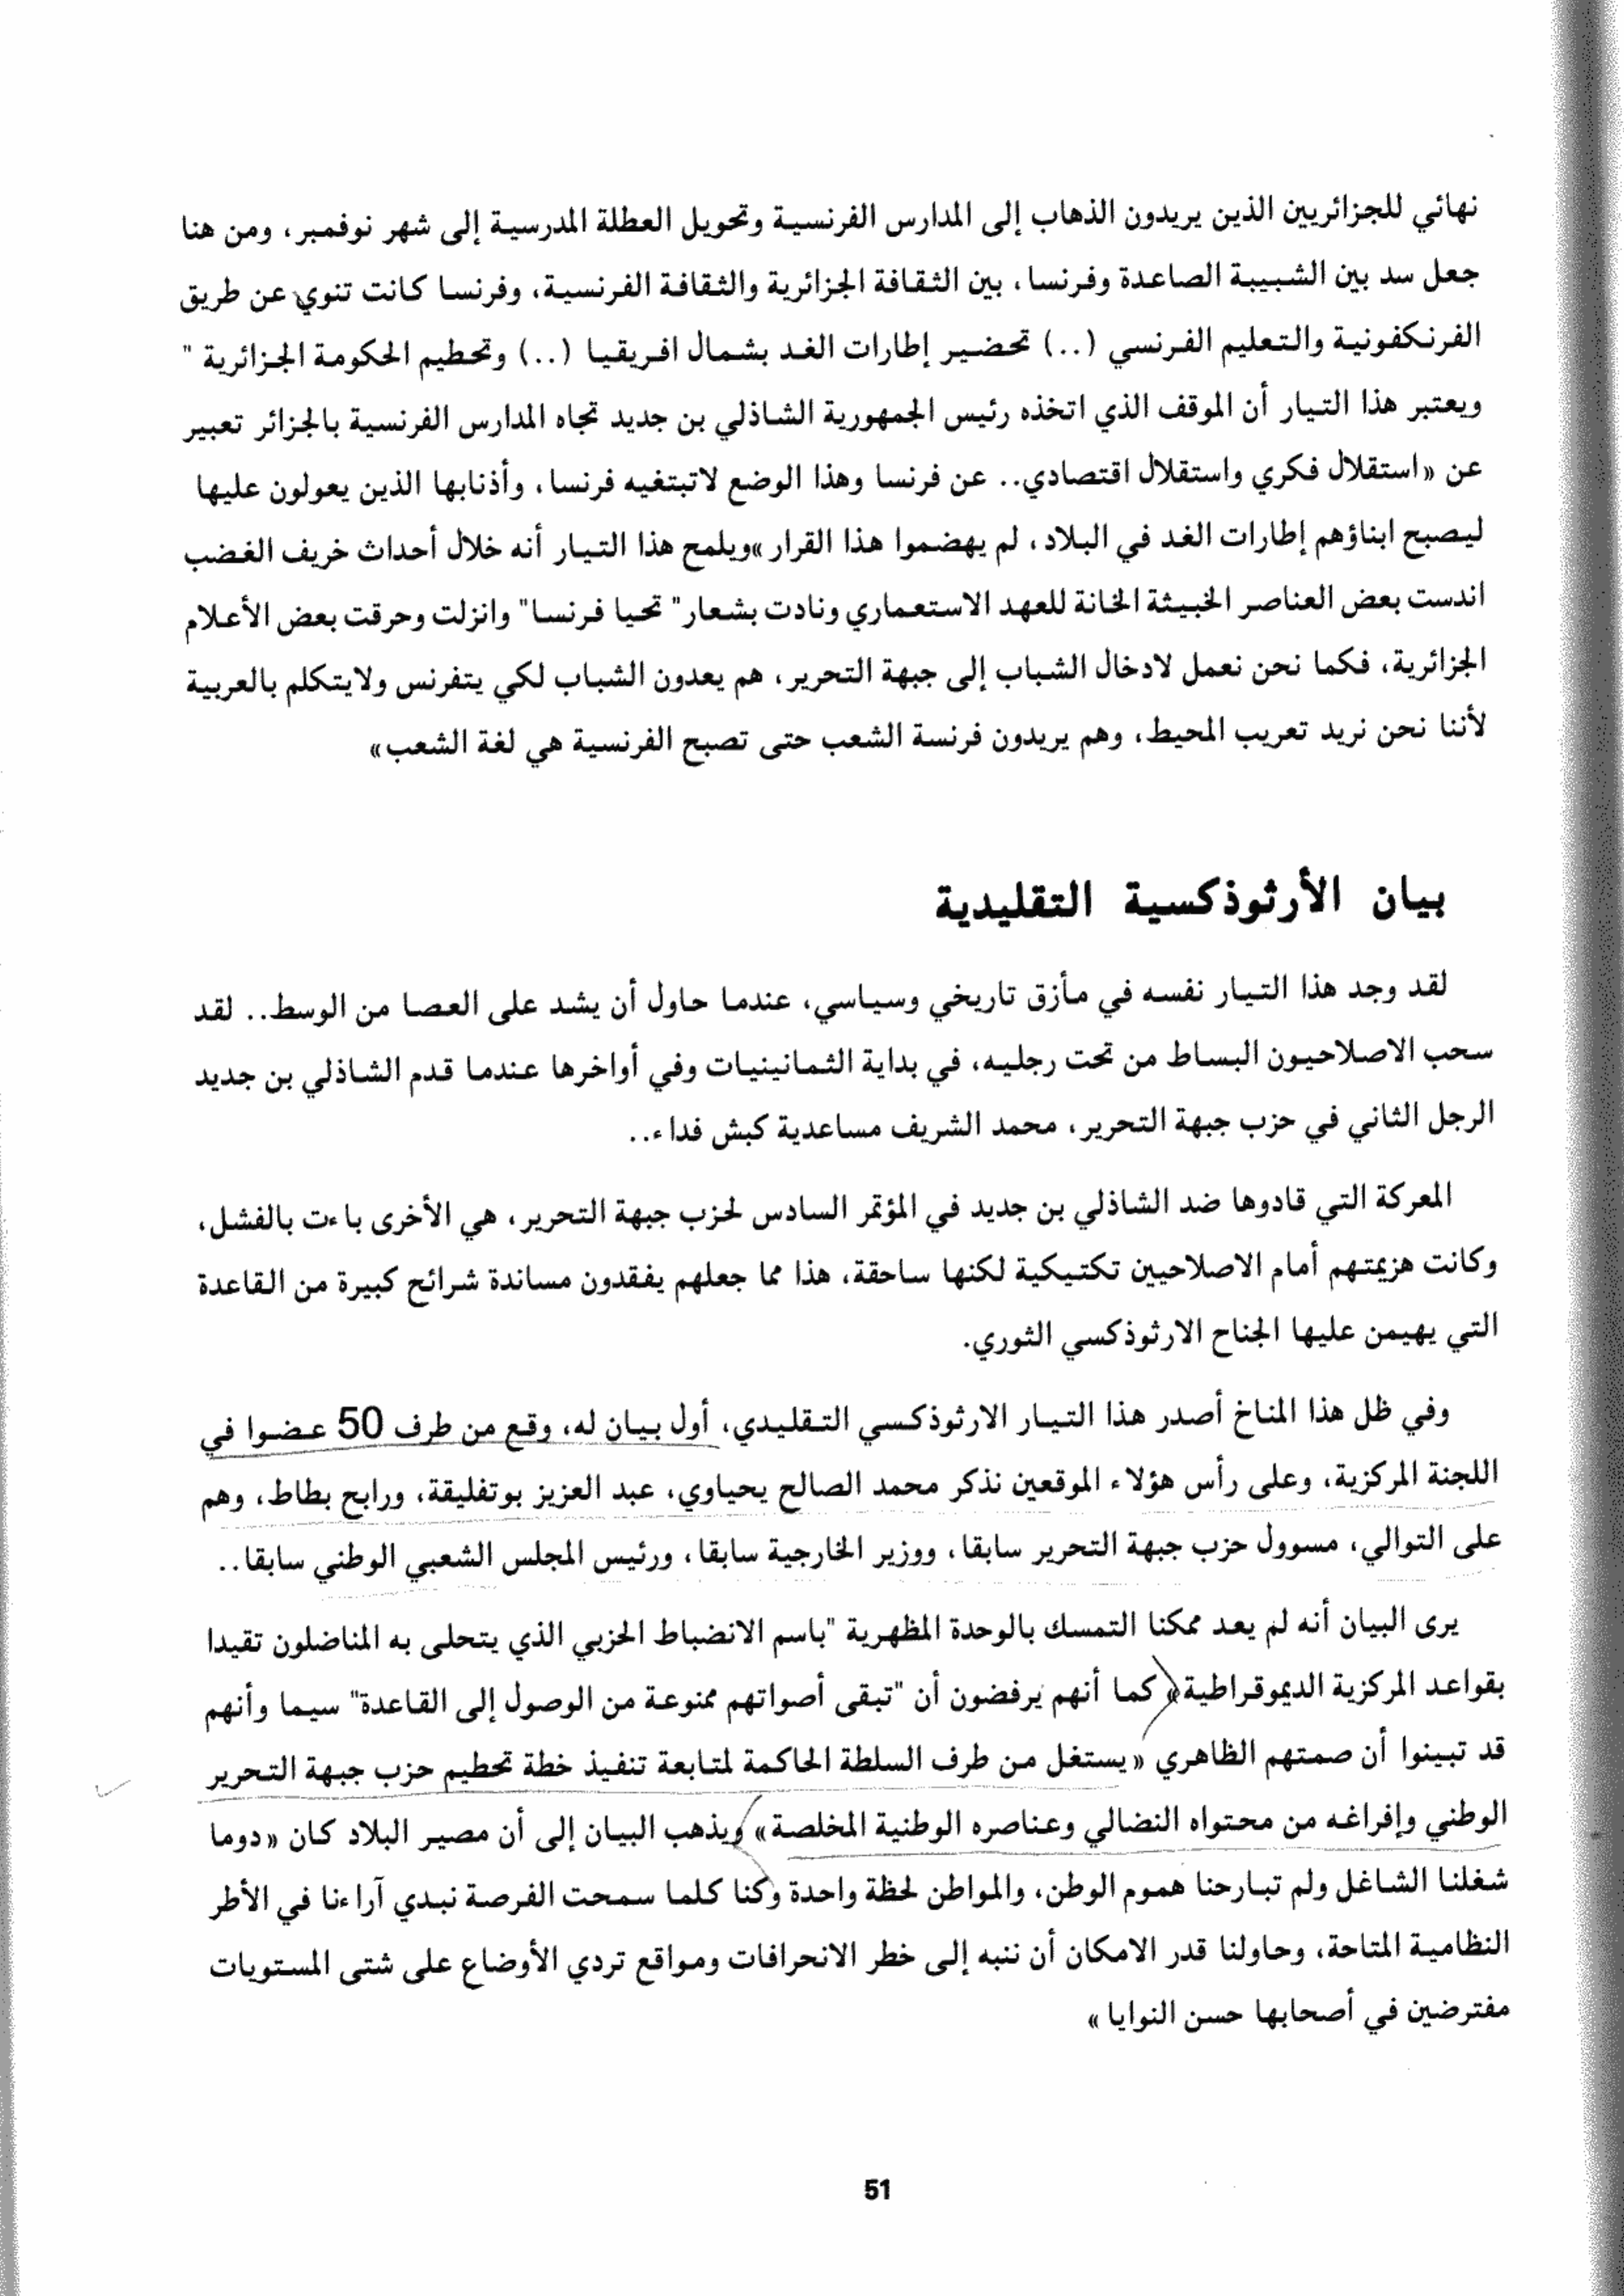 نهائي للجزائريين الذين يريدون الذهاب إلى المدارس الفرنسية وتحويل العطلة المدرسية إلى شهر نوفمبر، ومن هنا
جعل سد بين الشبيبة الصاعدة وفرنسا، بين الثقافة الجزائرية والثقافة الفرنسية، وفرنسا كانت تنوي عن طريق
الفرنكفونية والتعليم الفرنسي (..) تحضير إطارات الغد بشمال افريقيا (..) وتحطيم الحكومة الجزائرية "
ويعتبر هذا التيار أن الموقف الذي اتخذه رئيس الجمهورية الشاذلي بن جديد تجاه المدارس الفرنسية بالجزائر تعبير
عن «استقلال فكري واستقلال اقتصادي.. عن فرنسا وهذا الوضع لاتبتغيه فرنسا، وأذنابها الذين يعولون عليها
ليصبح ابناؤهم إطارات الغد في البلاد، لم يهضموا هذا القرار »ويلمح هذا التيار أنه خلال أحداث خريف الغضب
اندست بعض العناصر الخبيثة الخانة للعهد الاستعماري ونادت بشعار" تحيا فرنسا" وانزلت وحرقت بعض الأعلام
الجزائرية، فكما نحن نعمل لادخال الشباب إلى جبهة التحرير، هم يعدون الشباب لكي يتفرنس ولايتكلم بالعربية
لأننا نحن نريد تعريب المحيط، وهم يريدون فرنسة الشعب حتى تصبح الفرنسية هي لغة الشعب»
بيان الأرثوذكسية التقليدية
لقد وجد هذا التيار نفسه في مأزق تاريخي وسياسي، عندما حاول أن يشد على العصا من الوسط.. لقد
سحب الاصلاحيون البساط من تحت رجليه، في بداية الثمانينيات وفي أواخرها عندما قدم الشاذلي بن جديد
الرجل الثاني في حزب جبهة التحرير، محمد الشريف مساعدية كبش فداء..
المعركة التي قادوها ضد الشاذلي بن جديد في المؤتمر السادس لحزب جبهة التحرير، هي الأخرى باءت بالفشل،
وكانت هزيمتهم أمام الاصلاحيين تكتيكية لكنها ساحقة، هذا مما جعلهم يفقدون مساندة شرائح كبيرة من القاعدة
التي يهيمن عليها الجناح الارثوذكسي الثوري.
وفي ظل هذا المناخ أصدر هذا التيار الارثوذكسي التقليدي، أول بيان له، وقع من طرف 50 عضوا في
اللجنة المركزية، وعلى رأس هؤلاء الموقعين نذكر محمد الصالح يحياوي، عبد العزيز بوتفليقة، ورابح بطاط، وهم
على التوالي، مسوول حزب جبهة التحرير سابقا، ووزير الخارجية سابقا، ورئيس المجلس الشعبي الوطني سابقا..
يرى البيان أنه لم يعد ممكنا التمسك بالوحدة المظهرية "باسم الانضباط الحزبي الذي يتحلى به المناضلون تقيدا
بقواعد المركزية الديموقراطية» كما أنهم يرفضون أن "تبقى أصواتهم ممنوعة من الوصول إلى القاعدة" سيما وأنهم
قد تبينوا أن صمتهم الظاهري «يستغل من طرف السلطة الحاكمة لمتابعة تنفيذ خطة تحطيم حزب جبهة التحرير
الوطني وإفراغه من محتواه النضالي وعناصره الوطنية المخلصة» ويذهب البيان إلى أن مصير البلاد كان «دوما
شغلنا الشاغل ولم تبارحنا هموم الوطن، والمواطن لحظة واحدة وكنا كلما سمحت الفرصة نبدي آراءنا في الأطر
النظامية المتاحة، وحاولنا قدر الامكان أن ننبه إلى خطر الانحرافات ومواقع تردي الأوضاع على شتى المستويات
مفترضين في أصحابها حسن النوايا »
51